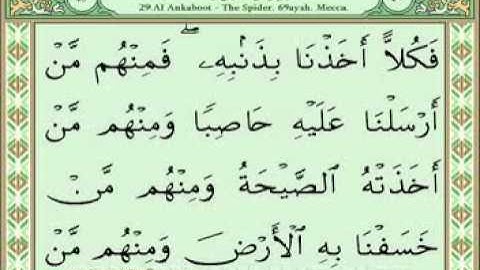 29.Al Ankaboot - The Spider. 69ayah. Mecca.
فَكُلًّا أَخَذْنَا بِذَنۢبِهِۦ ۖ فَمِنْهُم مَّنْ
أَرْسَلْنَا عَلَيْهِ حَاصِبًا وَمِنْهُم مَّنْ
أَخَذَتْهُ الصَّيْحَةُ وَمِنْهُم مَّنْ
خَسَفْنَا بِهِ الْأَرْضَ وَمِنْهُم مَّنْ